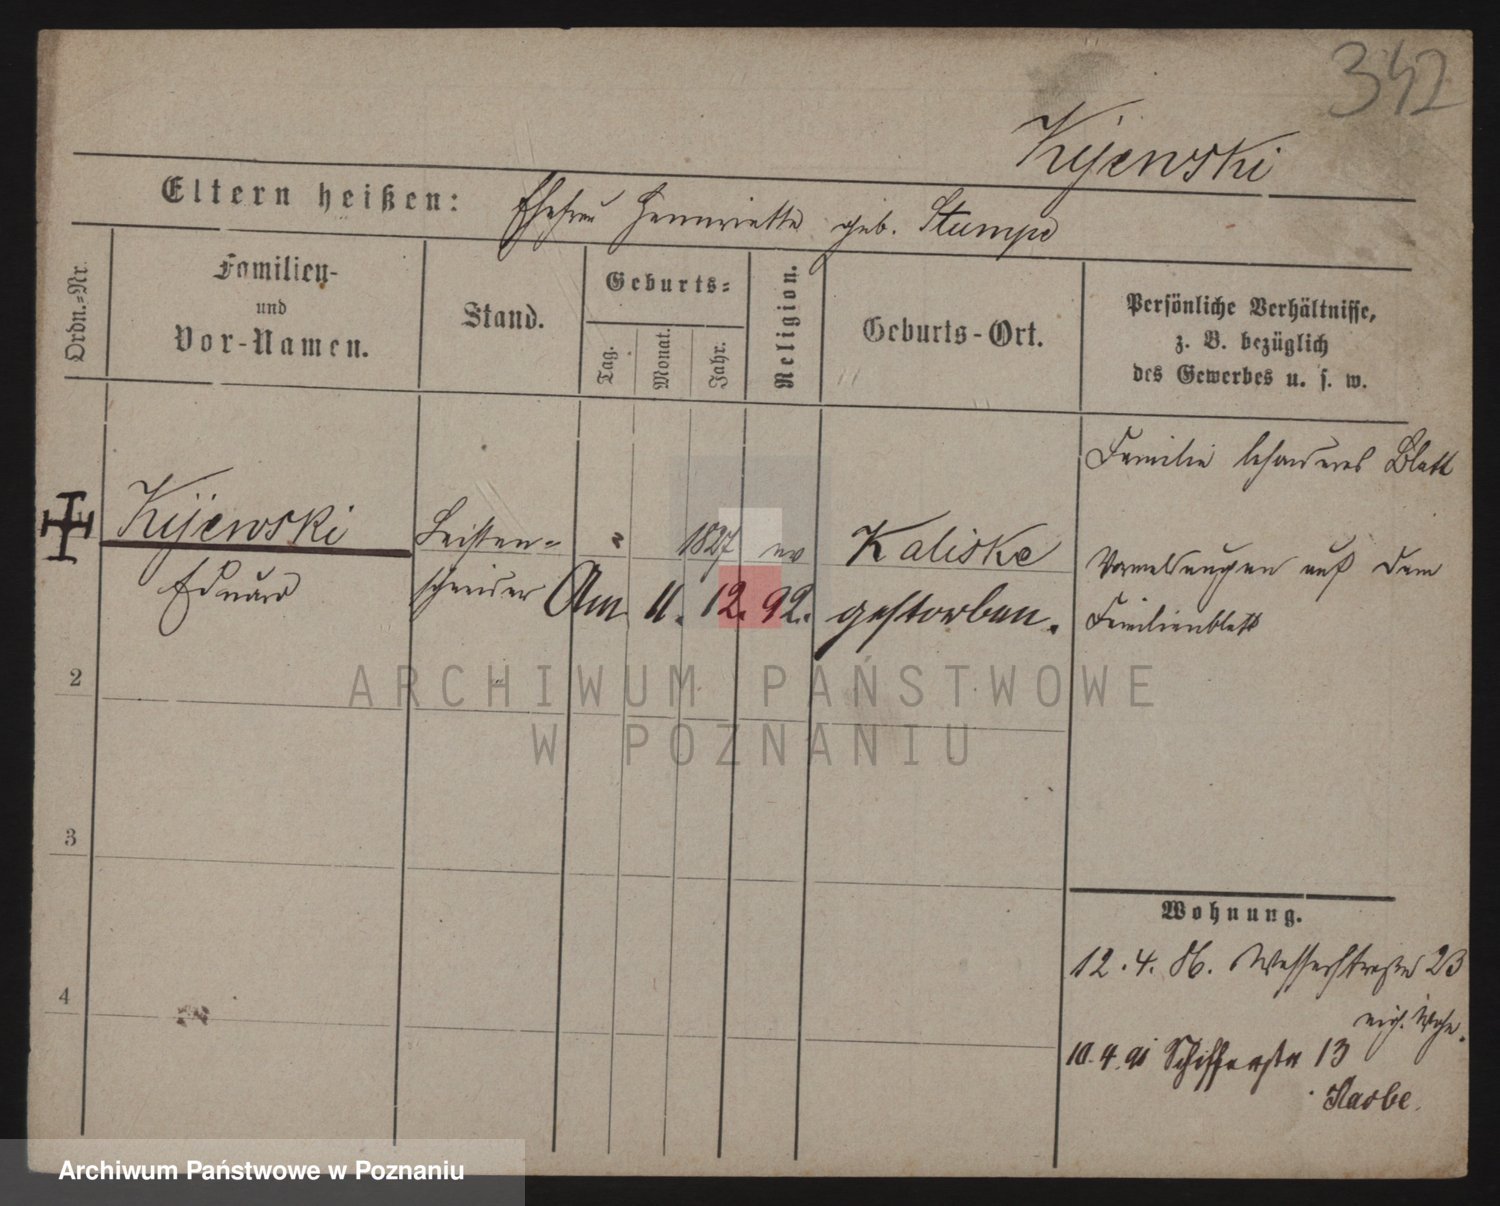 342
Kijewski
Eltern heißen: Ehefrau Henriette geb. Stumpe
Ordn.-Nr.
Familien-
und
Vor-Namen.
Stand.
Geburts-
Tag.
Monat.
Jahr.
Religion.
Geburts-Ort.
Persönliche Verhältnisse,
z. B. bezüglich
des Gewerbes u. s. w.
Familie besonderes Blatt
Kijewski
Eduard
Leisten-
schneider
1827
ev
Kaliske
Am 11. 12. 92. gestorben.
Vormeldungen auf dem
Familienblatt
2
3
4
Wohnung.
12.4.86. 23
10.4.91 Schifferstr 13
ARCHIWUM PAŃSTWOWE
W POZNANIU
Archiwum Państwowe w Poznaniu